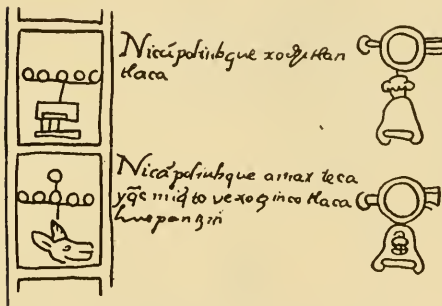 Nicã poliuhque xochitlan
tlaca
Nicã poliuhque amaxteca
yq̃c miq̃to vexoçinco tlaca